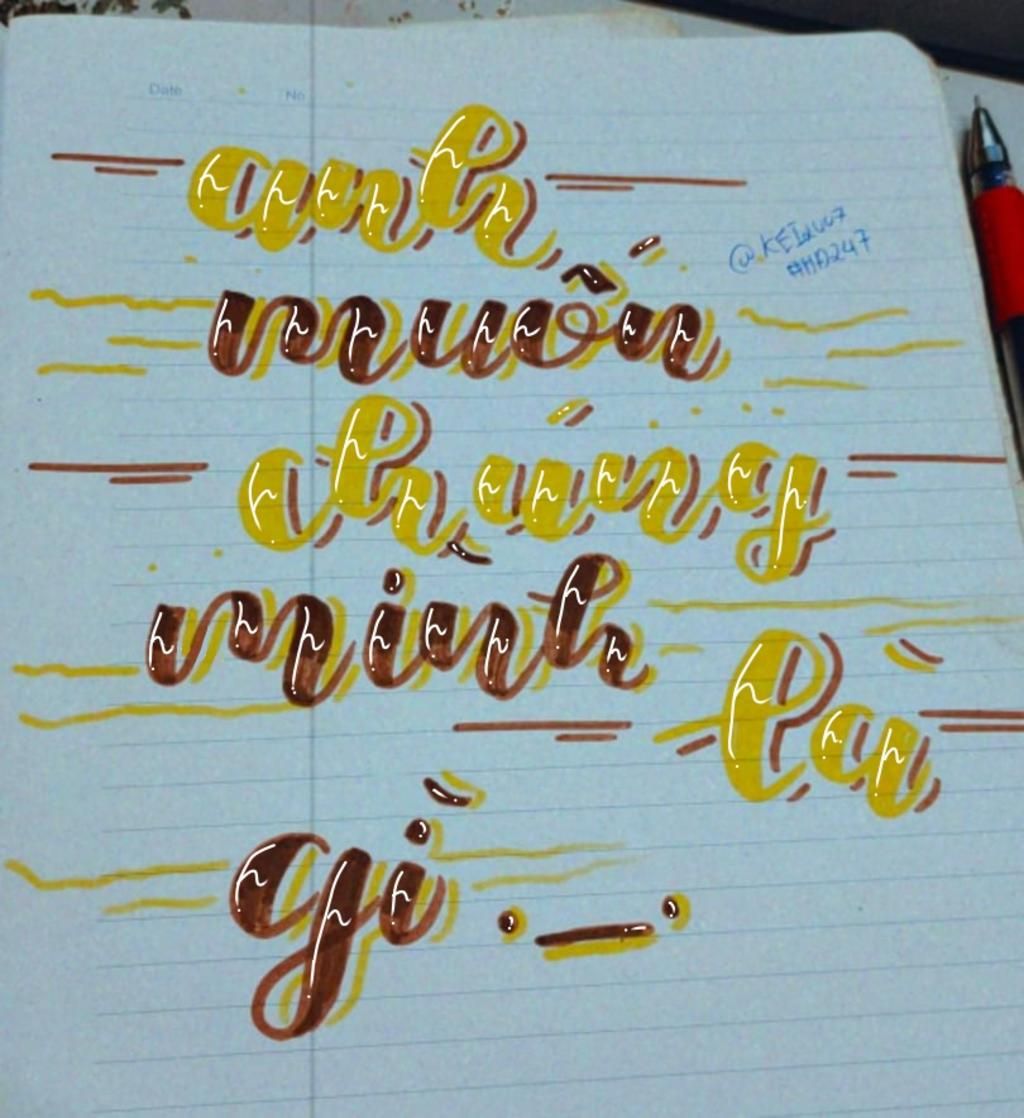 Date No
anh
@KEI2007
#HD247
muốn
chúng
mình
là
gì ._.